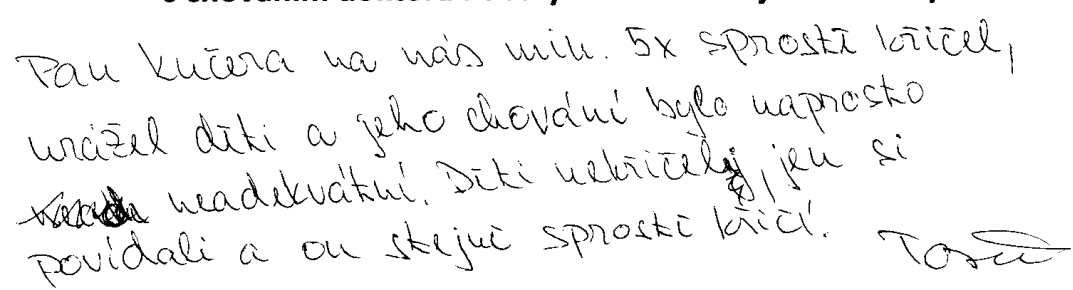 Pan Kučera na nás min. 5x sprostě křičel,
urážel děti a jeho chování bylo naprosto
neadekvátní. Děti nekřičely, jen si
povídali a on stejně sprostě křičí.